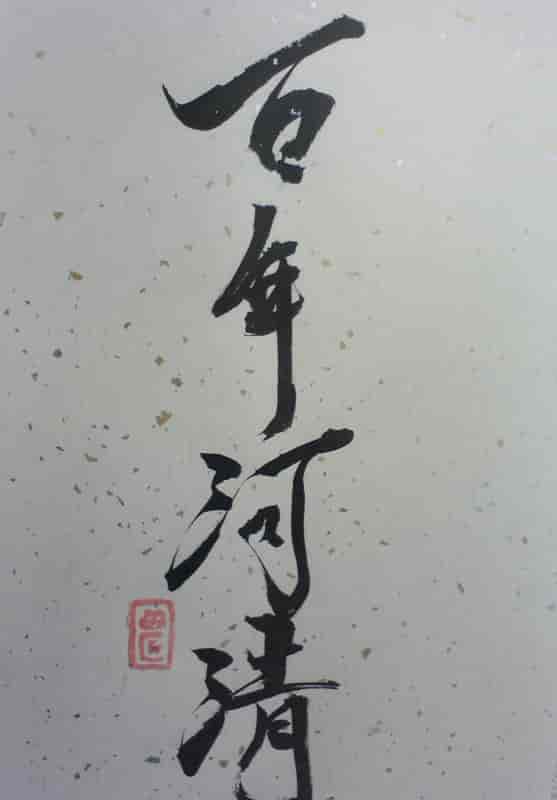 百年河清